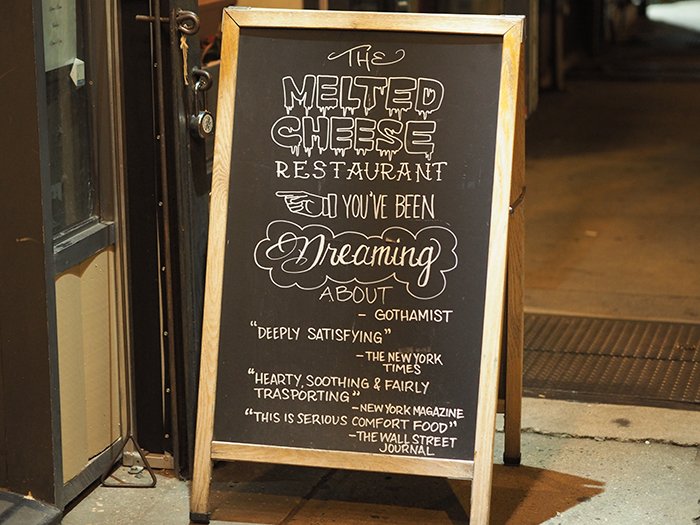 THE
MELTED
CHEESE
RESTAURANT
YOU'VE BEEN
Dreaming
ABOUT
- GOTHAMIST
"DEEPLY SATISFYING"
-THE NEW YORK
TIMES
"HEARTY, SOOTHING & FAIRLY
TRASPORTING"
-NEW YORK MAGAZINE
"THIS IS SERIOUS COMFORT FOOD"
-THE WALL STREET
JOURNAL